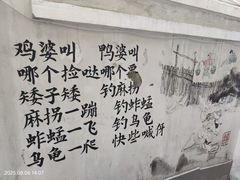 鸡婆叫 鸭婆叫
哪个捡哒哪个要
矮子矮 钓麻拐
麻拐一蹦 钓蚱蜢
蚱蜢一飞 钓乌龟
乌龟一爬 快些喊伢
2025.08.06 14:07